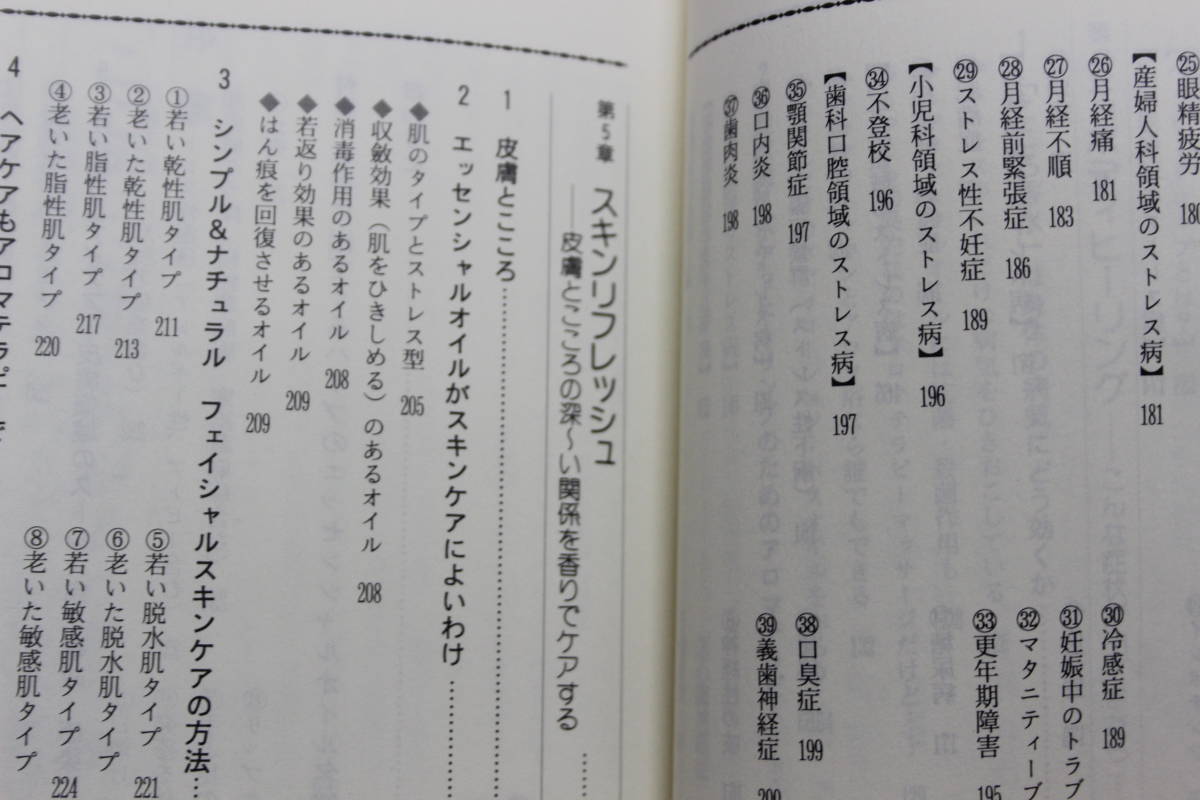 ㉕眼精疲労 180
【産婦人科領域のストレス病】 181
㉖月経痛 181
㉗月経不順 183
㉘月経前緊張症 186
㉙ストレス性不妊症 189
㉚冷感症 189
㉛妊娠中のトラブ
㉜マタニティーブ
㉝更年期障害 195
【小児科領域のストレス病】 196
㉞不登校 196
【歯科口腔領域のストレス病】 197
㉟顎関節症 197
㊱口内炎 198
㊲歯肉炎 198
㊳口臭症 199
㊴義歯神経症 200
第5章 スキンリフレッシュ
皮膚とこころの深〜い関係を香りでケアする……
1 皮膚とこころ……
◆肌のタイプとストレス型 205
2 エッセンシャルオイルがスキンケアによいわけ……
◆収斂効果(肌をひきしめる)のあるオイル 208
◆消毒作用のあるオイル 208
◆若返り効果のあるオイル 209
◆はん痕を回復させるオイル 209
3 シンプル&ナチュラル フェイシャルスキンケアの方法……
①若い乾性肌タイプ 211
②老いた乾性肌タイプ 213
③若い脂性肌タイプ 217
④老いた脂性肌タイプ 220
⑤若い脱水肌タイプ 221
⑥老いた脱水肌タイプ
⑦若い敏感肌タイプ 224
⑧老いた敏感肌タイプ
4 ヘアケアもアロマテラピー